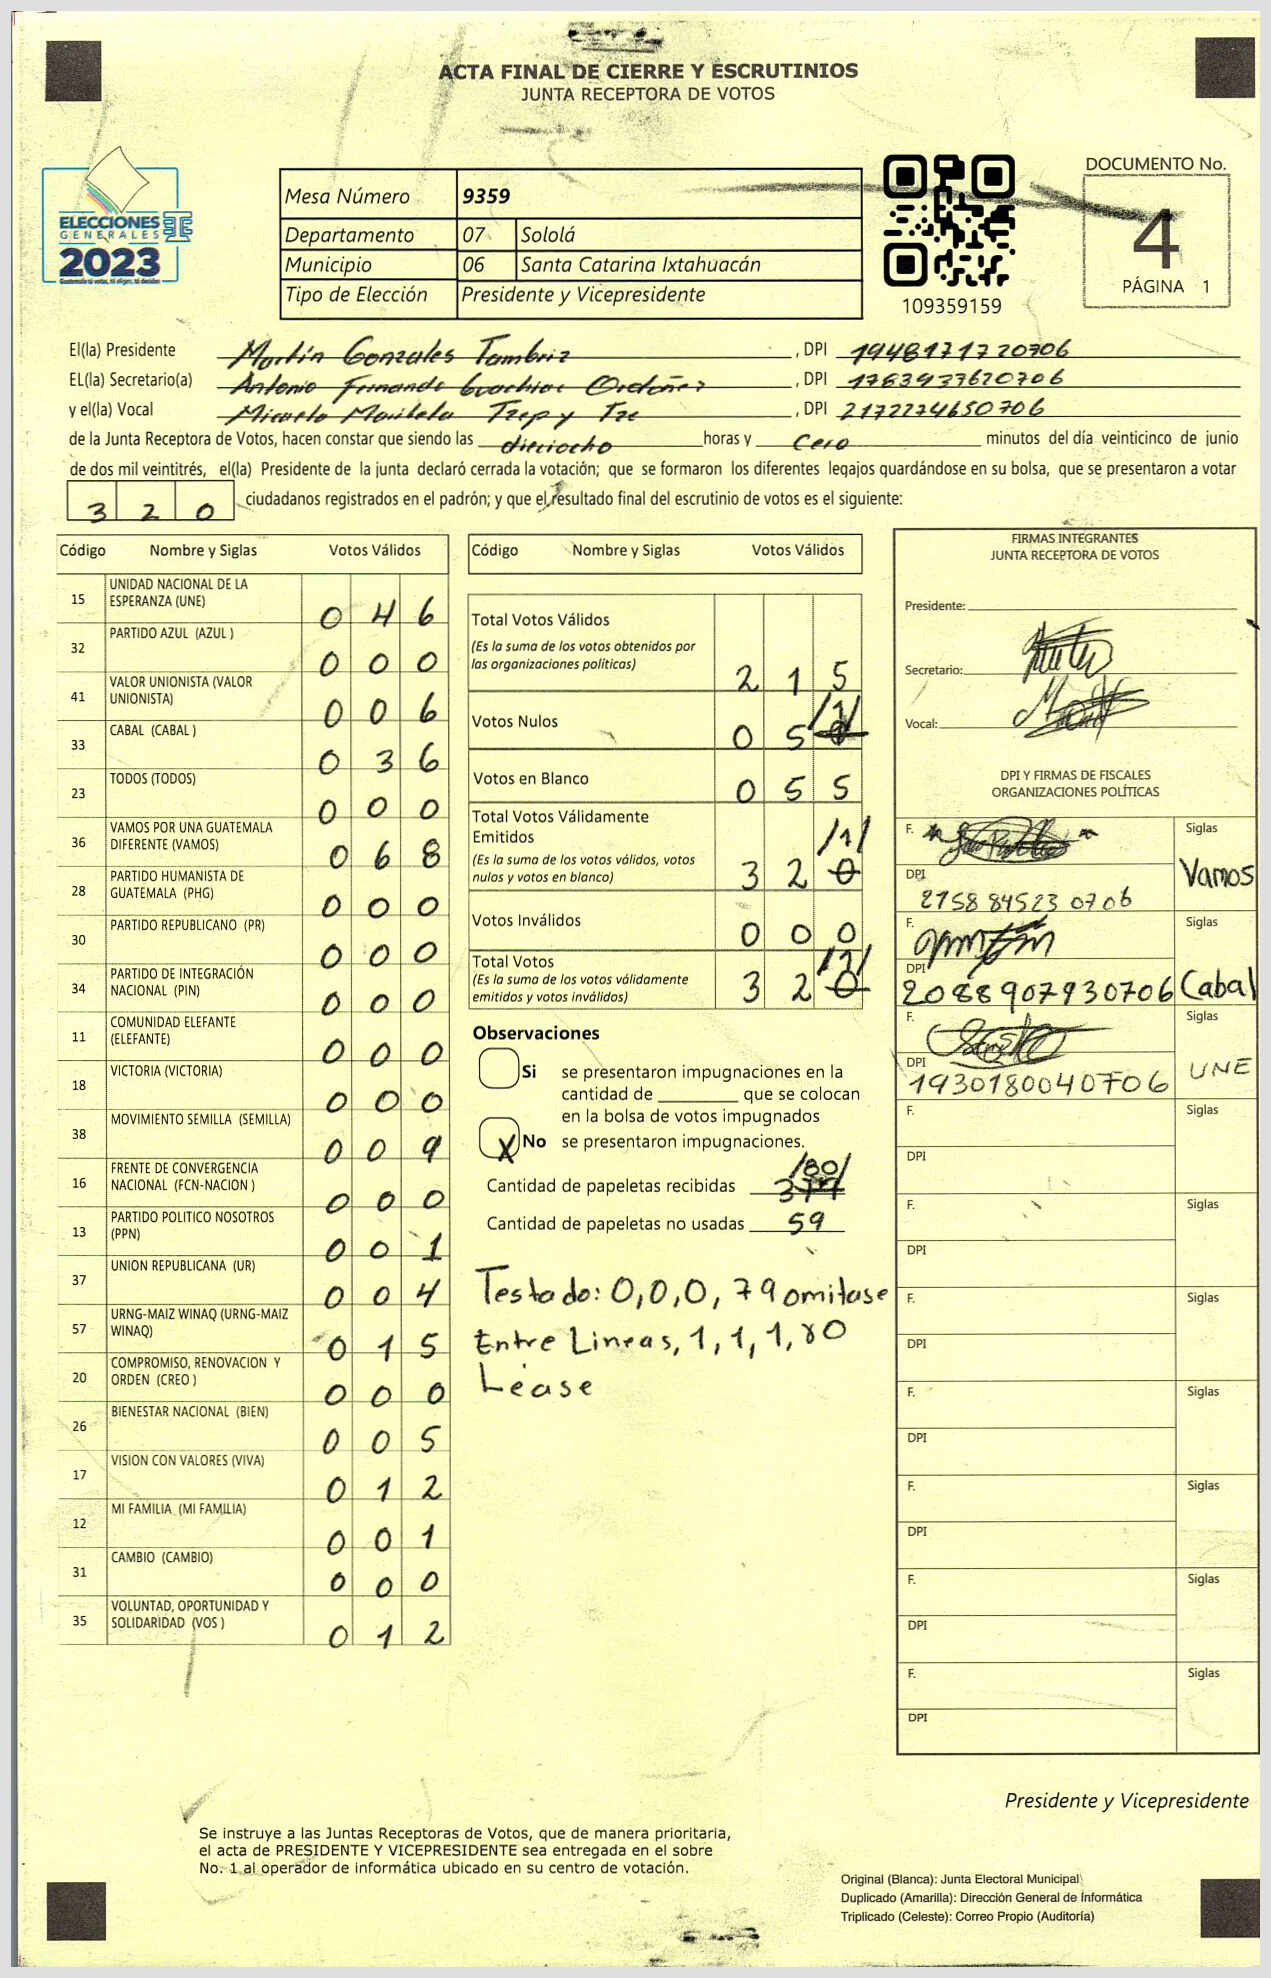 ACTA FINAL DE CIERRE Y ESCRUTINIOS
JUNTA RECEPTORA DE VOTOS
ELECCIONES
GENERALES
2023
Guatemala tú votas, tú eliges, tú decides
TSE
Mesa Número 9359
Departamento 07 Sololá
Municipio 06 Santa Catarina Ixtahuacán
Tipo de Elección Presidente y Vicepresidente
109359159
DOCUMENTO No.
4
PÁGINA 1
El(la) Presidente Martín Gonzales Tambriz, DPI 1948171720706
EL(la) Secretario(a) Antonio Fernando Guachiac Ordoñez, DPI 1783937620706
y el(la) Vocal Micaela Maribela Tzep y Tze, DPI 2172274650706
de la Junta Receptora de Votos, hacen constar que siendo las dieciocho horas y cero minutos del día veinticinco de junio
de dos mil veintitrés, el(la) Presidente de la junta declaró cerrada la votación; que se formaron los diferentes legajos quardándose en su bolsa, que se presentaron a votar
3 2 0 ciudadanos registrados en el padrón; y que el resultado final del escrutinio de votos es el siguiente:
Código Nombre y Siglas Votos Válidos
15 UNIDAD NACIONAL DE LA ESPERANZA (UNE) 0 4 6
32 PARTIDO AZUL (AZUL ) 0 0 0
41 VALOR UNIONISTA (VALOR UNIONISTA) 0 0 6
33 CABAL (CABAL ) 0 3 6
23 TODOS (TODOS) 0 0 0
36 VAMOS POR UNA GUATEMALA DIFERENTE (VAMOS) 0 6 8
28 PARTIDO HUMANISTA DE GUATEMALA (PHG) 0 0 0
30 PARTIDO REPUBLICANO (PR) 0 0 0
34 PARTIDO DE INTEGRACIÓN NACIONAL (PIN) 0 0 0
11 COMUNIDAD ELEFANTE (ELEFANTE) 0 0 0
18 VICTORIA (VICTORIA) 0 0 0
38 MOVIMIENTO SEMILLA (SEMILLA) 0 0 9
16 FRENTE DE CONVERGENCIA NACIONAL (FCN-NACION ) 0 0 0
13 PARTIDO POLITICO NOSOTROS (PPN) 0 0 1
37 UNION REPUBLICANA (UR) 0 0 4
57 URNG-MAIZ WINAQ (URNG-MAIZ WINAQ) 0 1 5
20 COMPROMISO, RENOVACION Y ORDEN (CREO ) 0 0 0
26 BIENESTAR NACIONAL (BIEN) 0 0 5
17 VISION CON VALORES (VIVA) 0 1 2
12 MI FAMILIA (MI FAMILIA) 0 0 1
31 CAMBIO (CAMBIO) 0 0 0
35 VOLUNTAD, OPORTUNIDAD Y SOLIDARIDAD (VOS ) 0 1 2
Código Nombre y Siglas Votos Válidos
Total Votos Válidos 2 1 5
(Es la suma de los votos obtenidos por
las organizaciones políticas)
Votos Nulos 0 5 0 /1/
Votos en Blanco 0 5 5
Total Votos Válidamente
Emitidos 3 2 0 /1/
(Es la suma de los votos válidos, votos
nulos y votos en blanco)
Votos Inválidos 0 0 0
Total Votos 3 2 0 /1/
(Es la suma de los votos válidamente
emitidos y votos inválidos)
Observaciones
Si se presentaron impugnaciones en la
cantidad de ________ que se colocan
en la bolsa de votos impugnados
X No se presentaron impugnaciones.
/80/
Cantidad de papeletas recibidas 379
Cantidad de papeletas no usadas 59
Testado: 0,0,0, 79 omitase
Entre Lineas, 1, 1, 1, 80
Léase
FIRMAS INTEGRANTES
JUNTA RECEPTORA DE VOTOS
Presidente:
Secretario:
Vocal:
DPI Y FIRMAS DE FISCALES
ORGANIZACIONES POLÍTICAS
F. Siglas
DPI 2758 84523 0706 Vamos
F. Siglas
DPI 2088907930706 Cabal
F. Siglas
DPI 1930180040706 UNE
F. Siglas
DPI
F. Siglas
DPI
F. Siglas
DPI
F. Siglas
DPI
F. Siglas
DPI
F. Siglas
DPI
F. Siglas
DPI
Presidente y Vicepresidente
Se instruye a las Juntas Receptoras de Votos, que de manera prioritaria,
el acta de PRESIDENTE Y VICEPRESIDENTE sea entregada en el sobre
No. 1 al operador de informática ubicado en su centro de votación.
Original (Blanca): Junta Electoral Municipal
Duplicado (Amarilla): Dirección General de Informática
Triplicado (Celeste): Correo Propio (Auditoría)